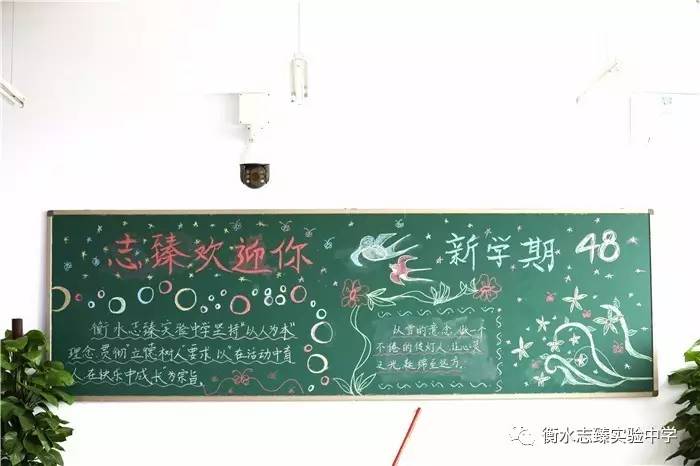 志臻欢迎你
新学期 48
衡水志臻实验中学坚持"以人为本"
理念,贯彻"立德树人"要求,以"在活动中育
人,在快乐中成长"为宗旨。
以爱的意念,做一个
不倦的传灯人,让心灵
之光,延绵至远方。
衡水志臻实验中学